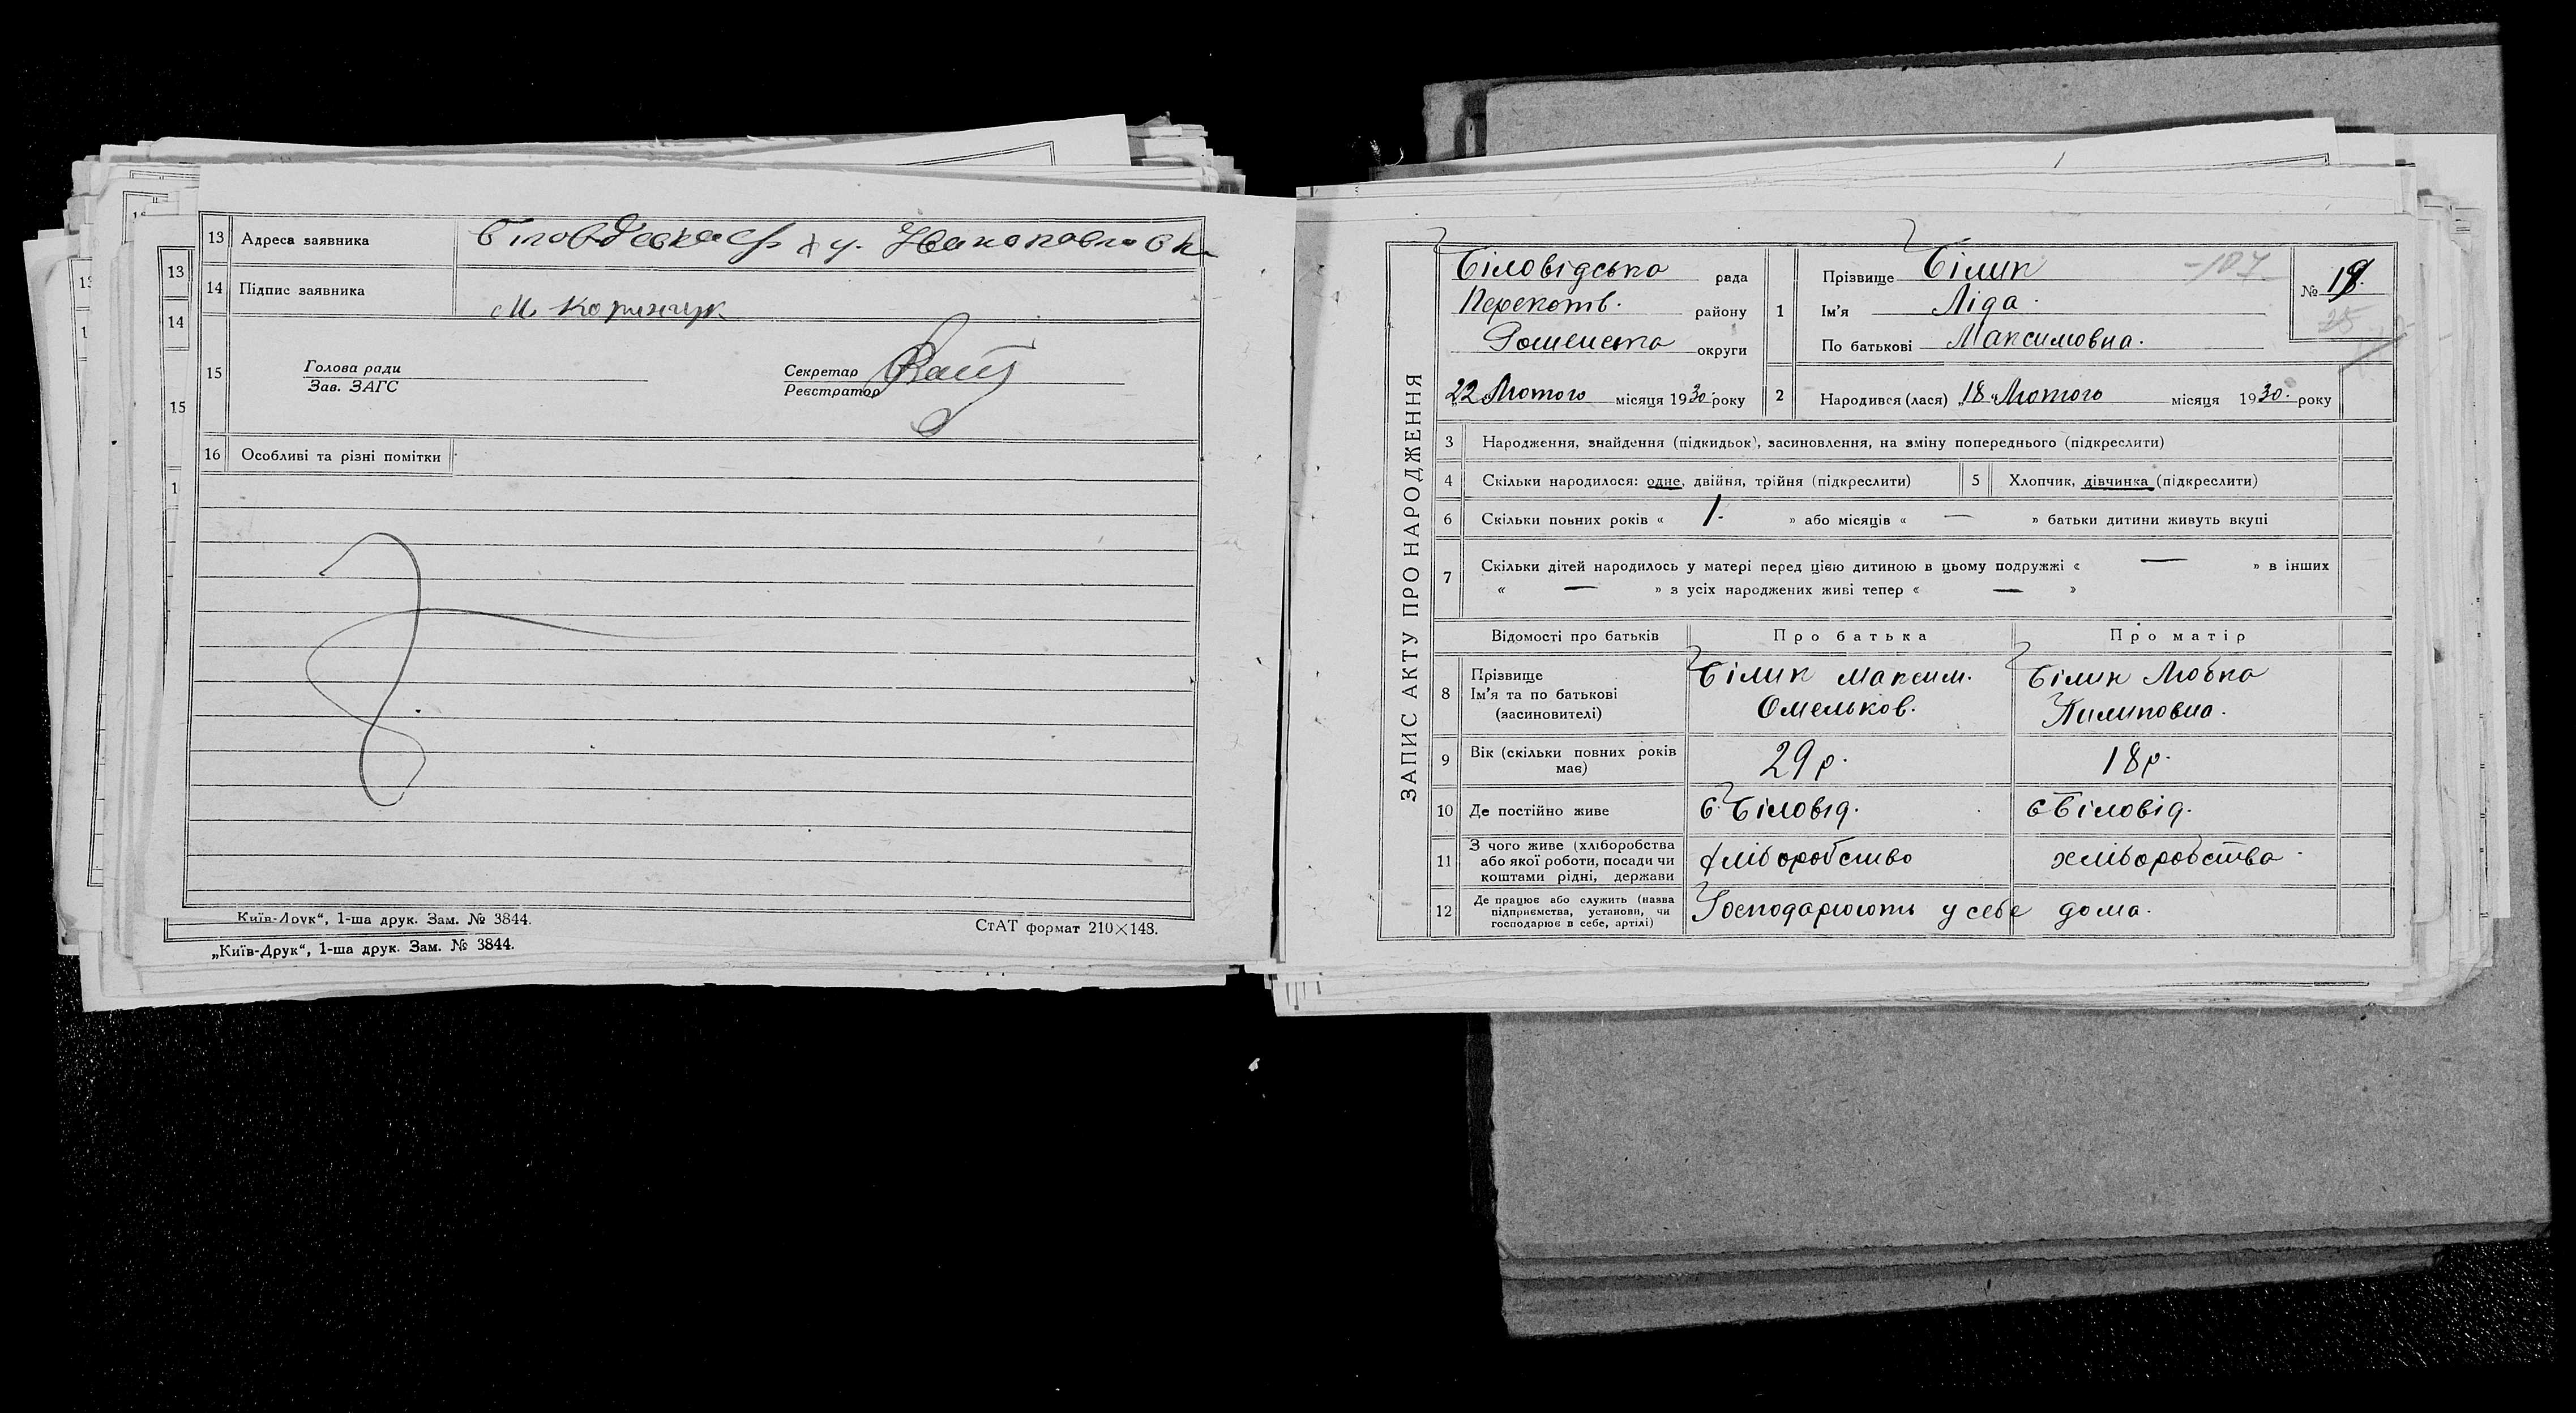 13 Адреса заявника
14 Підпис заявника
15 Голова ради
Зав. ЗАГС
Секретар
Реєстратор
16 Особливі та різні помітки
Київ-Друк“, 1-ша друк. Зам. № 3844.
СтАТ формат 210×148.
„Київ-Друк“, 1-ша друк. Зам. № 3844.
13
14
15
ЗАПИС АКТУ ПРО НАРОДЖЕННЯ
Біловідська рада
Перекопів. району
Роменська округи
„22 Лютого місяця 1930 року
1 Прізвище Білик -107
Ім'я Ліда.
По батькові Максимовна.
№ 19.
25
2 Народився (лася) „18“ Лютого місяця 1930. року
3 Народження, знайдення (підкидьок), засиновлення, на зміну попереднього (підкреслити)
4 Скільки народилося: одне, двійня, трійня (підкреслити) 5 Хлопчик, дівчинка (підкреслити)
6 Скільки повних років « 1. » або місяців « — » батьки дитини живуть вкупі
7 Скільки дітей народилось у матері перед цією дитиною в цьому подружжі « — » в інших
« — » з усіх народжених живі тепер « — »
Відомості про батьків Про батька Про матір
8 Прізвище
Ім'я та по батькові
(засиновителі)
Білик Максим.
Омельков.
Білик Любка
Пилиповна.
9 Вік (скільки повних років
має)
29 р. 18 р.
10 Де постійно живе с. Біловід. с Біловід.
11 З чого живе (хліборобства
або якої роботи, посади чи
коштами рідні, держави
хліборобство хліборобства
12 Де працює або служить (назва
підприємства, установи, чи
господарює в себе, артілі)
Господарюють у себе дома.